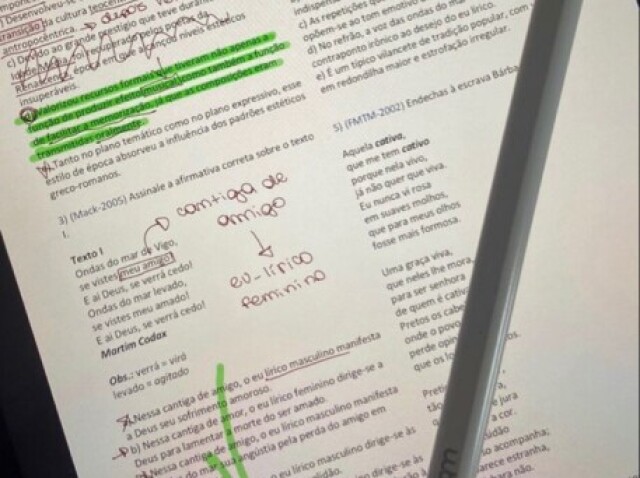 ) Desenvolveu-se
depois
transição da cultura teocêntrica
antropocêntrica.
c) Devido ao grande prestígio que teve durante
Idade Média, foi recuperado pelos poetas da
Renascença, época em que alcançou níveis estéticos
insuperáveis.
Valorizou recursos formais que tiveram não apenas a
função de produzir efeito musical, como também a função
de facilitar a memorização, já que as composições eram
transmitidas oralmente.
Tanto no plano temático como no plano expressivo, esse
estilo de época absorveu a influência dos padrões estéticos
greco-romanos.
3) (Mack-2005) Assinale a afirmativa correta sobre o texto
I.
cantiga de
amigo
eu-lírico
feminino
Texto I
Ondas do mar de Vigo,
se vistes meu amigo!
E ai Deus, se verrá cedo!
Ondas do mar levado,
se vistes meu amado!
E ai Deus, se verrá cedo!
Martim Codax
Obs.: verrá = virá
levado = agitado
a) Nessa cantiga de amigo, o eu lírico masculino manifesta
a Deus seu sofrimento amoroso.
b) Nessa cantiga de amor, o eu lírico feminino dirige-se a
Deus para lamentar a morte do ser amado.
Nessa cantiga de amigo, o eu lírico masculino manifesta
do mar sua angústia pela perda do amigo em
o eu lírico masculino dirige-se às
o eu lírico feminino dirige-se às
c) As repetições
opõem-se ao tom emotivo
d) No refrão, a voz das ondas do mar
contraponto irônico ao desejo do eu lírico.
e) É um típico vilancete de tradição popular, com
em redondilha maior e estrofação irregular.
5) (FMTM-2002) Endechas à escrava Bárba
Aquela cativa,
que me tem cativo
porque nela vivo,
já não quer que viva.
Eu nunca vi rosa
em suaves molhos,
que para meus olhos
fosse mais formosa.
Uma graça viva,
que neles lhe mora,
para ser senhora
de quem é cativa
Pretos os cabe
onde o povo
perde opin
que os lo
Preti
tão
a cor.
acompanha;
arece estranha,
bara não.